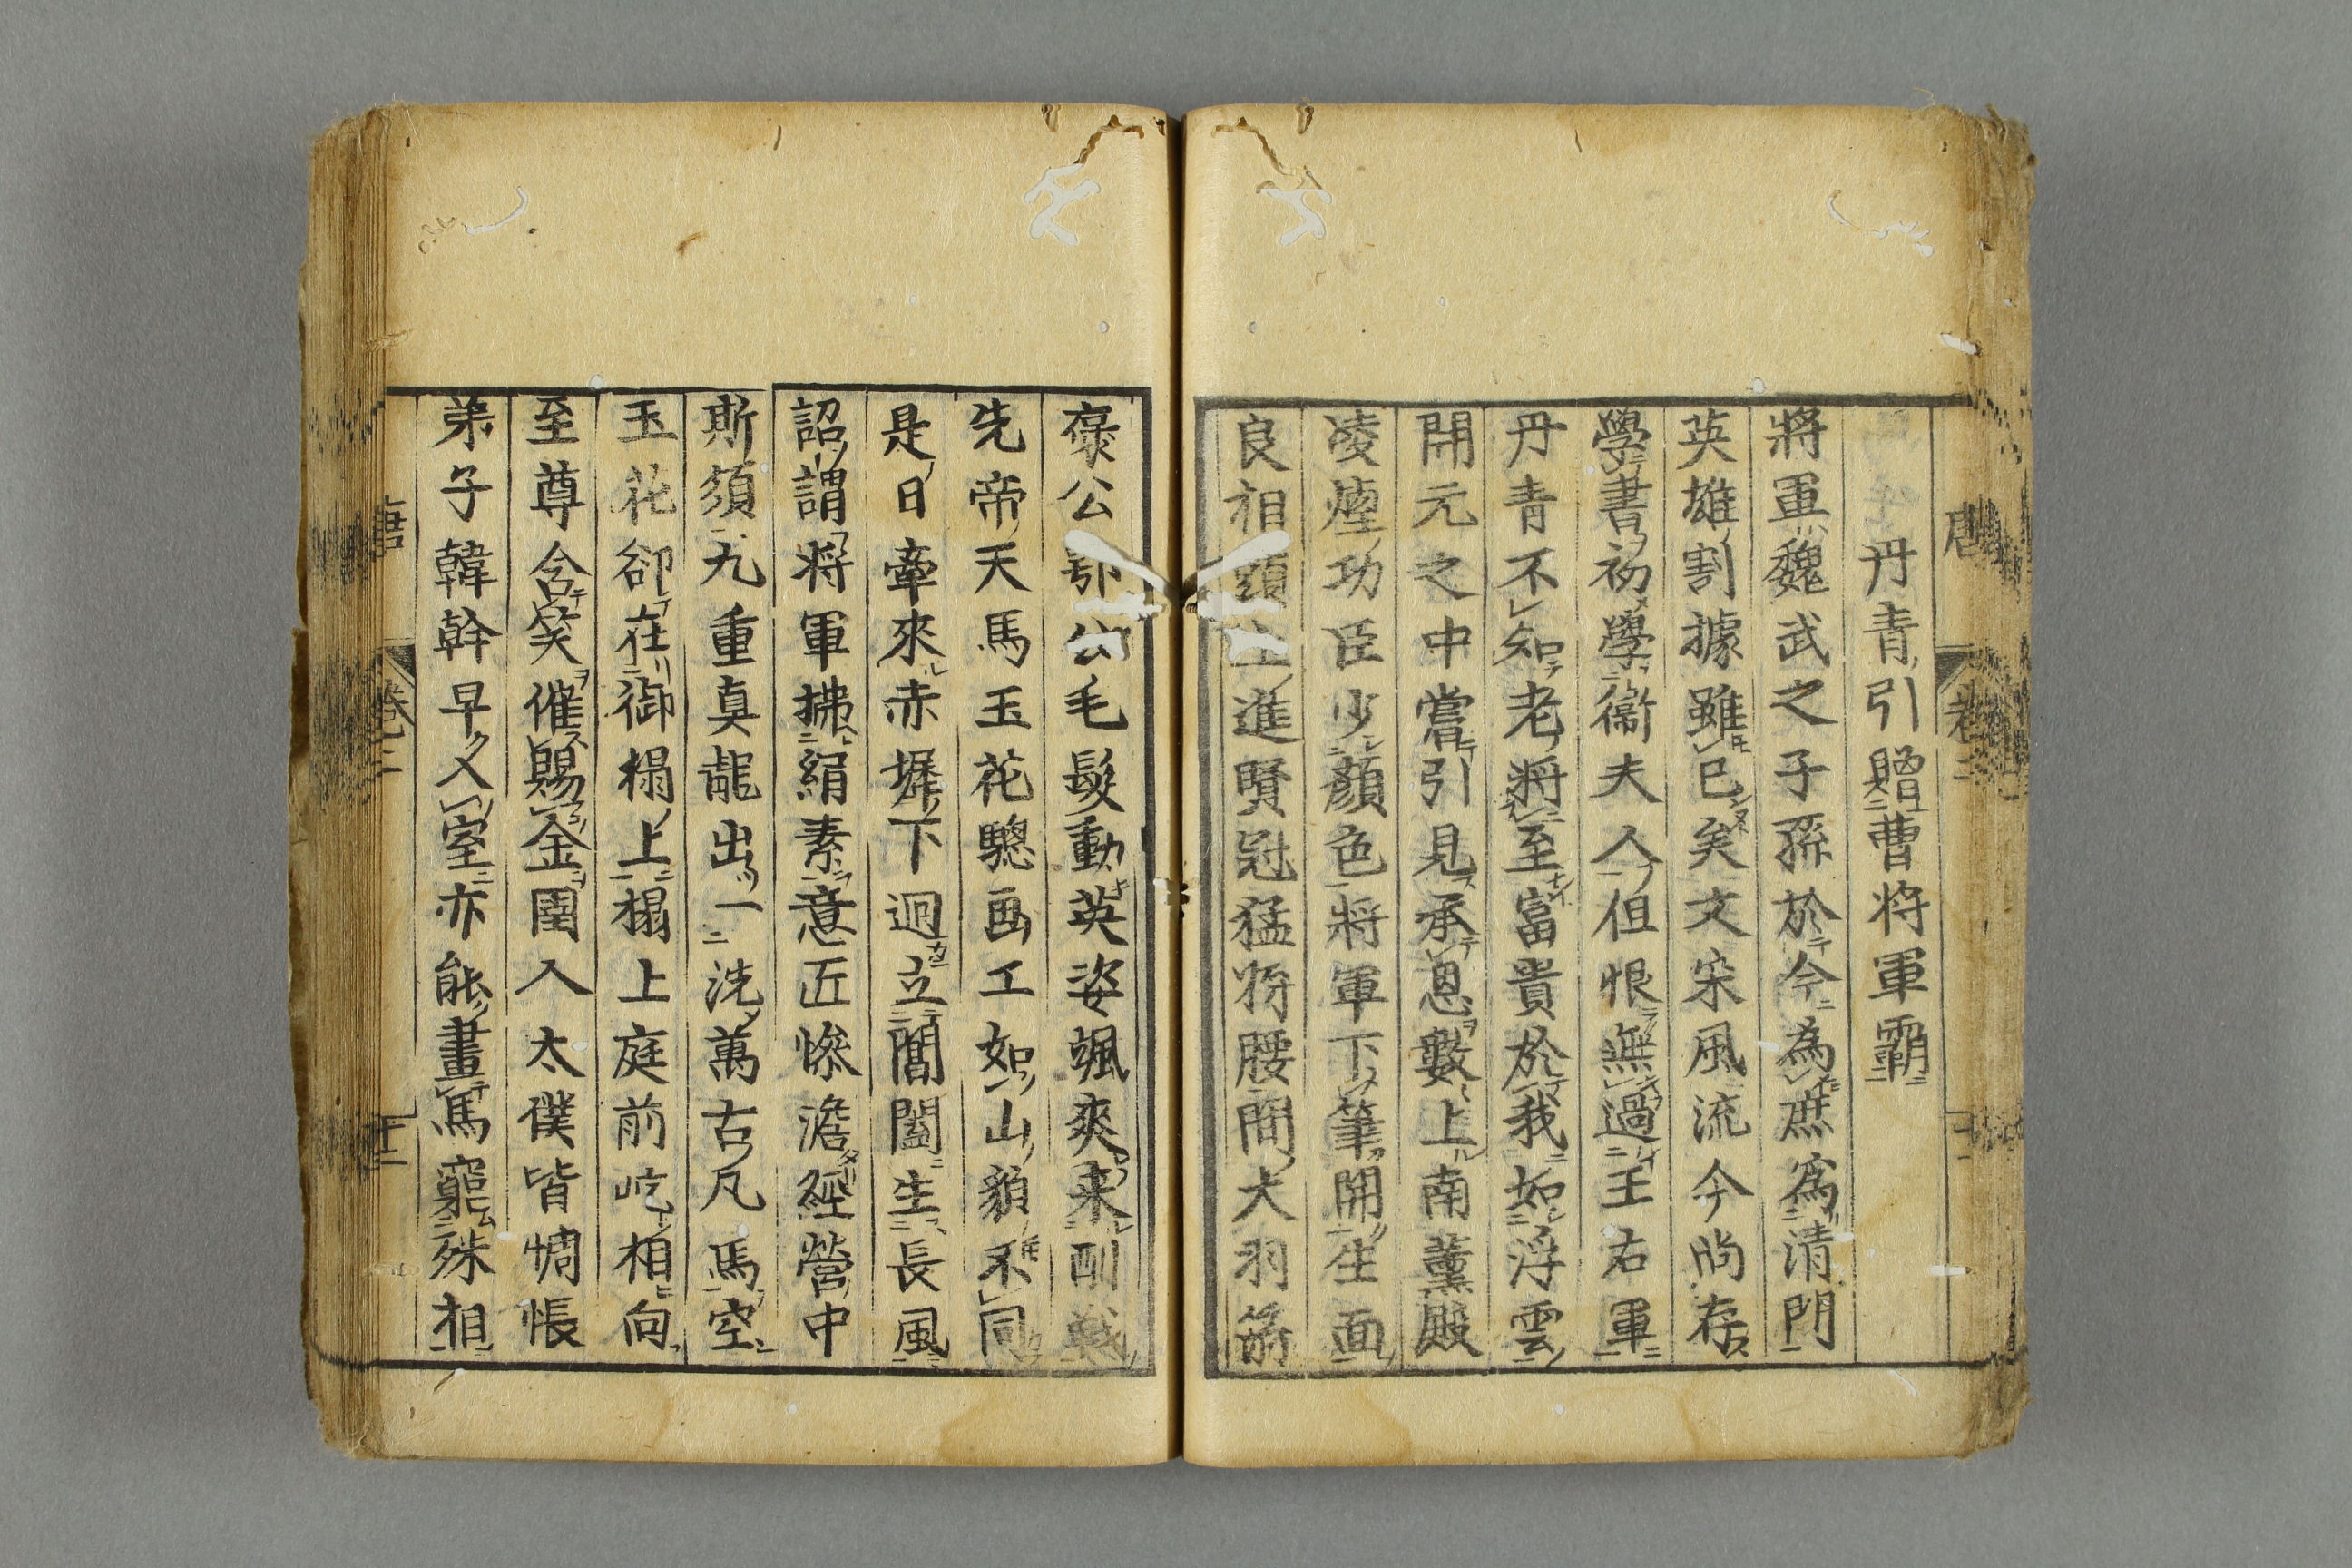 丹青引贈曹将軍霸
將軍魏武之子孫於今為庶爲清門
英雄割據雖已矣文采風流今尚存
學書初學衞夫人但恨無過王右軍
丹青不知老将至富貴於我如浮雲
開元之中嘗引見承恩數上南薫殿
凌煙功臣少顔色將軍下筆開生面
良相頭上進賢冠猛将腰間大羽箭
褒公鄂公毛髮動英姿颯爽来酣戦
先帝天馬玉花驄画工如山貌不同
是日牽來赤墀下迥立閶闔生長風
詔謂将軍拂絹素意匠慘澹經營中
斯須九重真龍出一洗萬古凡馬空
玉花卻在御榻上榻上庭前屹相向
至尊含笑催賜金圉人太僕皆惆悵
弟子韓幹早入室亦能畫馬窮殊相